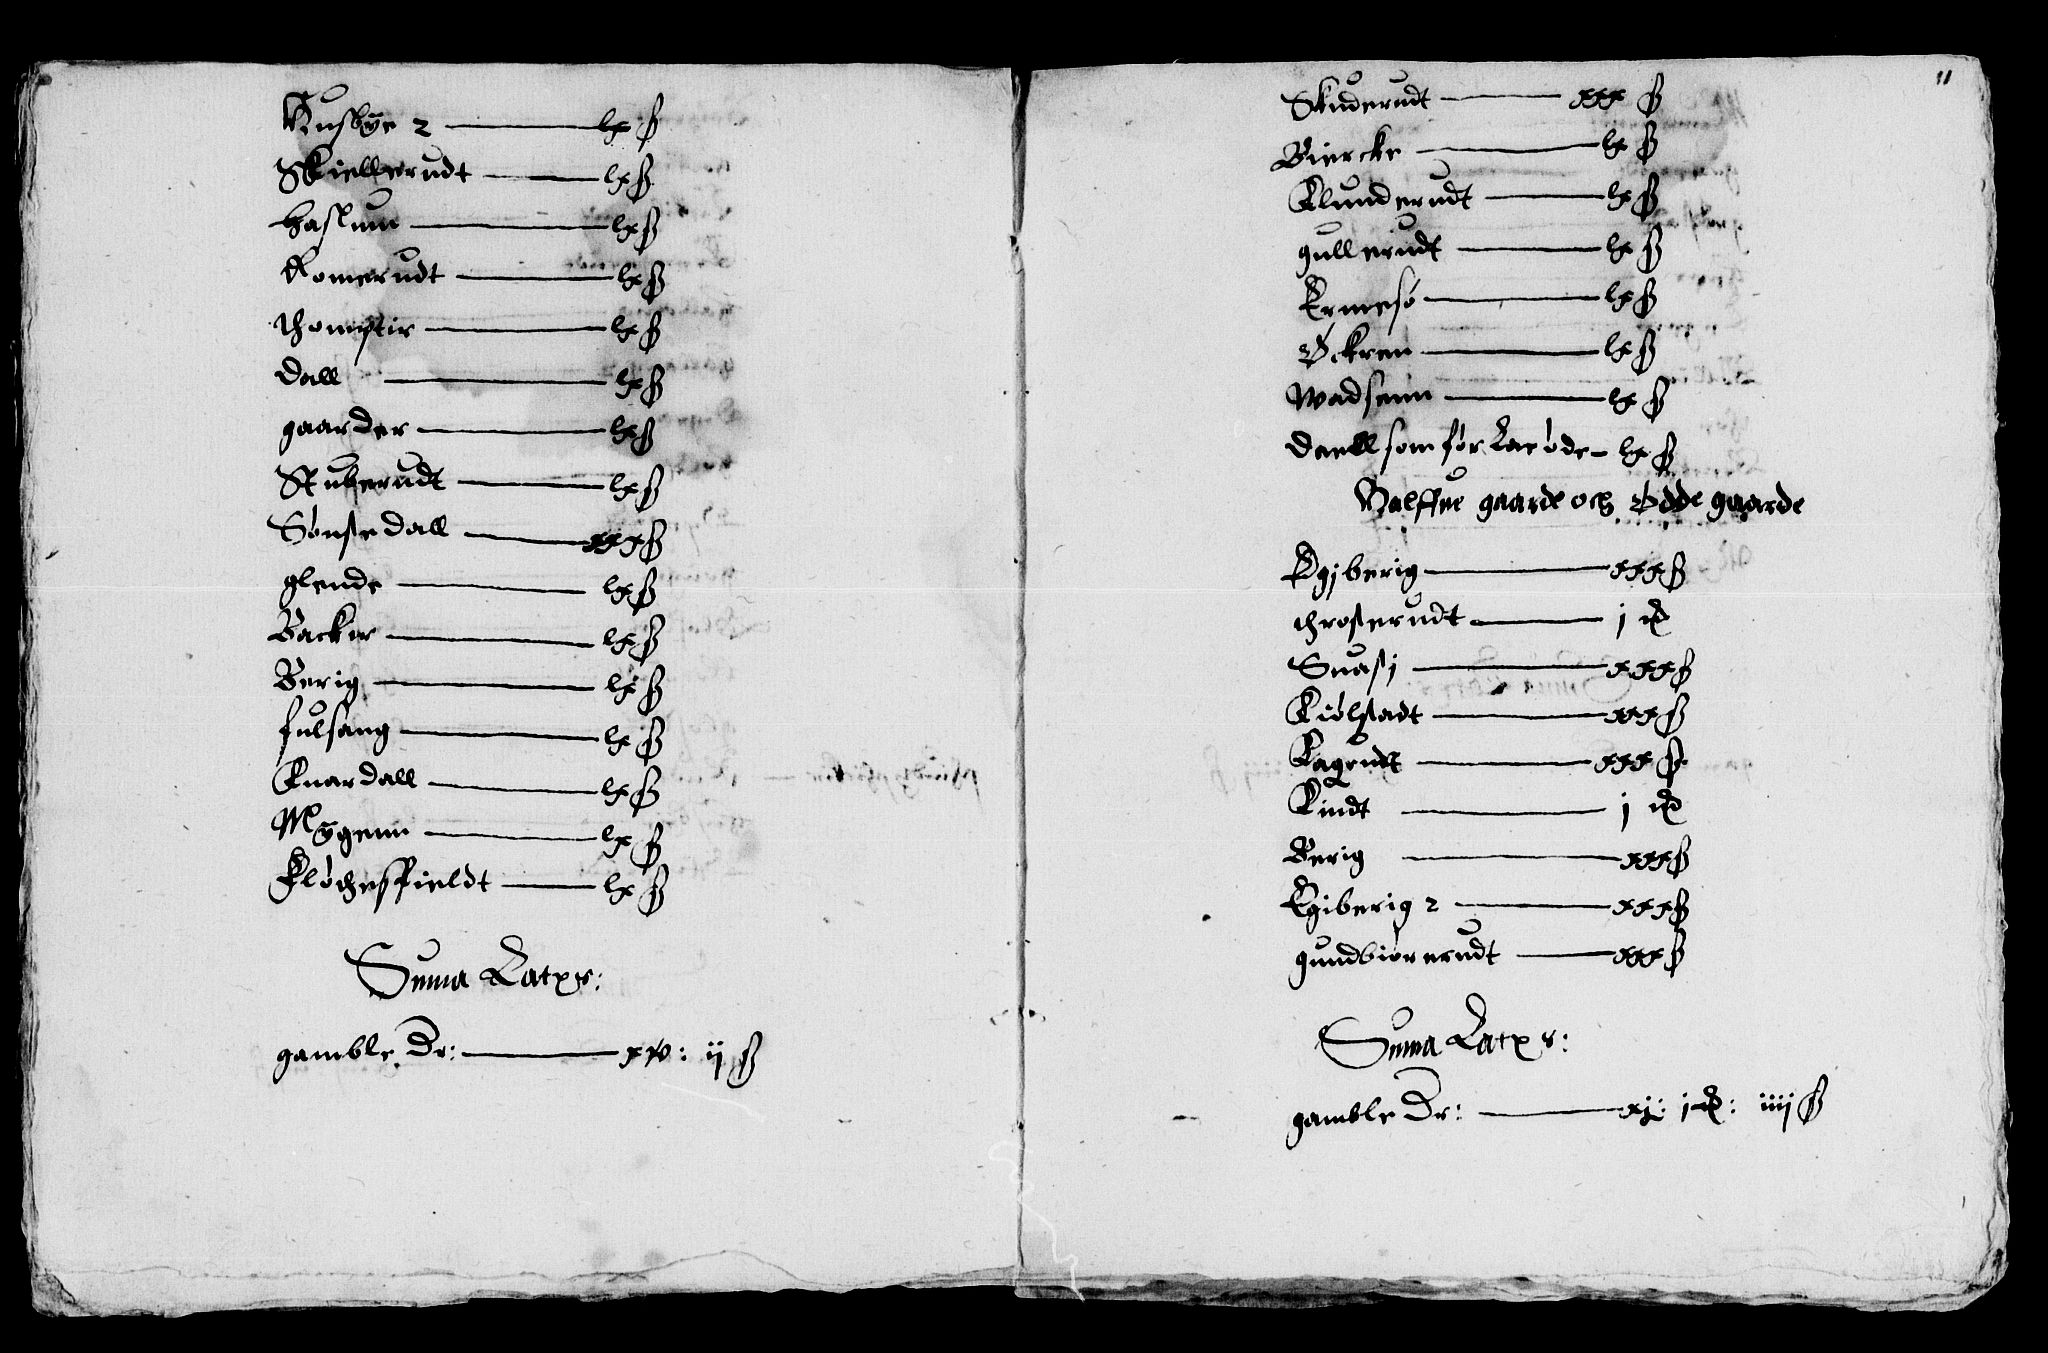 Husbye 2 — lx ß
Skiellerudt — lx ß
haslum — lx ß
Romerudt — lx ß
thompter — lx ß
Dall — lx ß
gaarder — lx ß
Stuberudt — lx ß
Sønsedall — xxx ß
glende — lx ß
Backer — lx ß
Berig — lx ß
fulsang — lx ß
Knardall — lx ß
Mÿgenn — lx ß
Kløchesffieldt — lx ß
Suma Latrs:
gamble Dr: — xv: ij ß
11
Skuderudt — xxx ß
Biercke — lx ß
Klunderudt — lx ß
gullerudt — lx ß
Ermesø — lx ß
Økren — lx ß
Wadsenn — lx ß
Daell som før Laa øde — lx ß
Halffue gaarde och Ødde gaarde
Egjberig — xxx ß
throserudt — j
Suasj — xxx ß
Kiølstadt — xxx ß
Kagrudt — xxx ß
Kindt — j
Berig — xxx ß
Egiberig 2 — xxx ß
gundbiørerudt — xxx ß
Suma Latrs:
gamble Dr: — xj: j : iiij ß